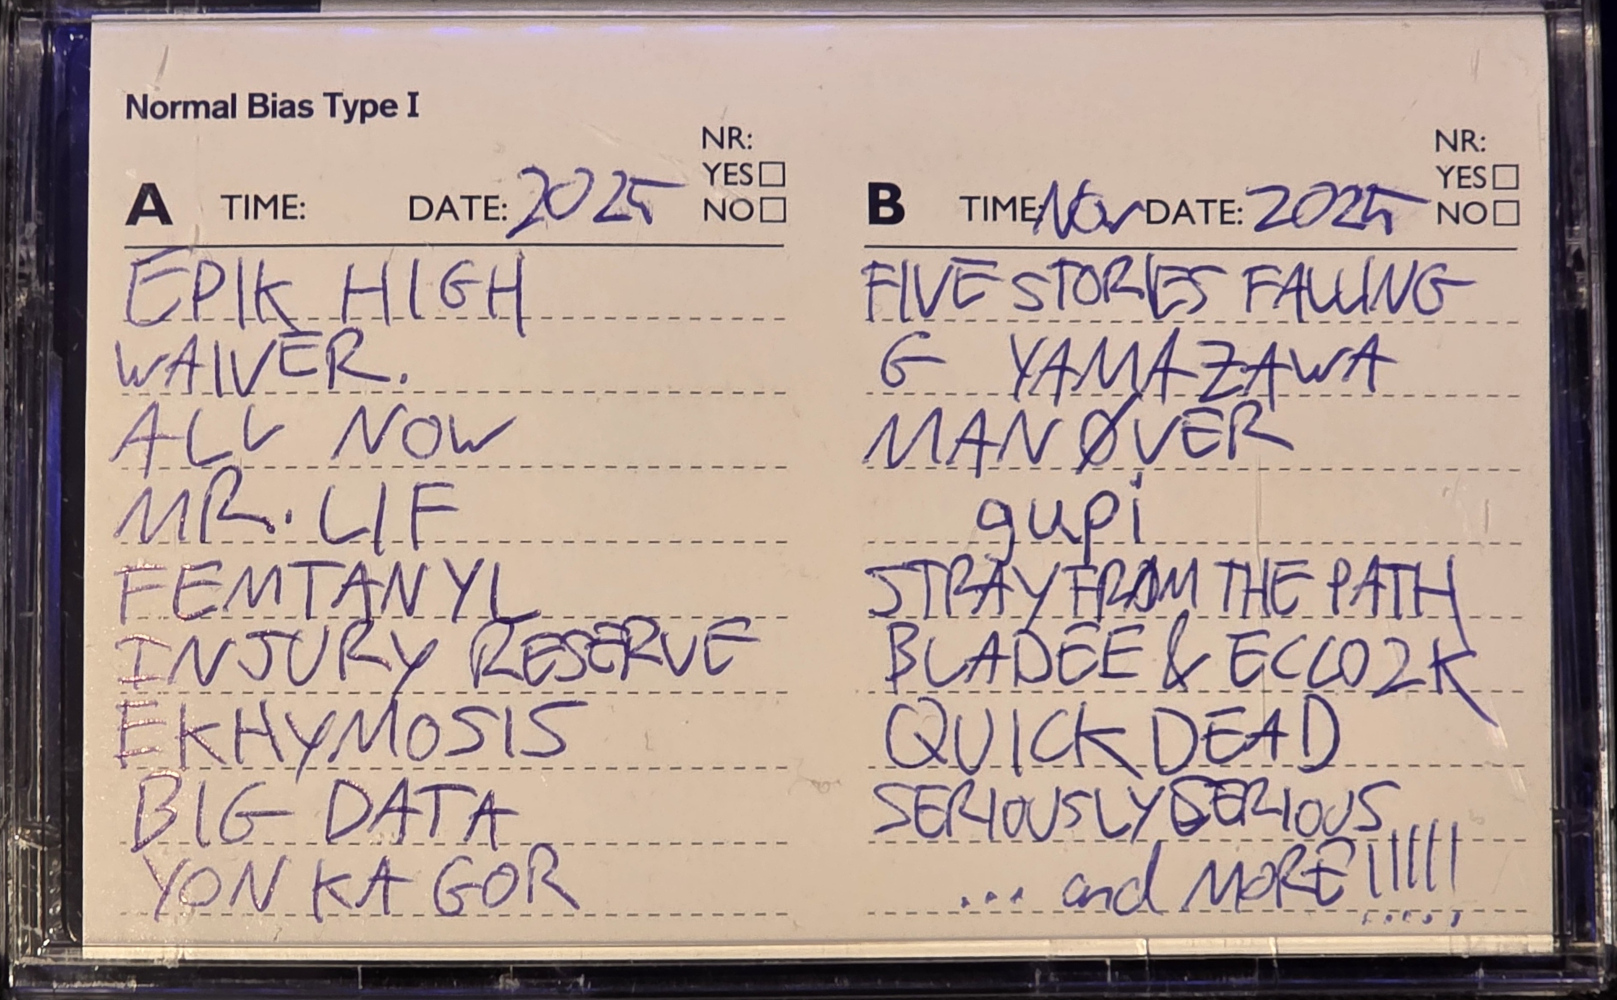 Normal Bias Type I
A TIME: DATE: 2025 NR: YES NO
EPIK HIGH
WAIVER.
ALL NOW
MR. LIF
FEMTANYL
INJURY RESERVE
EKHYMOSIS
BIG DATA
YON KA GOR
B TIME: Nov DATE: 2025 NR: YES NO
FIVE STORIES FALLING
G YAMAZAWA
MANØVER
gupi
STRAY FROM THE PATH
BLADEE & ECCO2K
QUICK DEAD
SERIOUSLYSERIOUS
... and MORE!!!!!